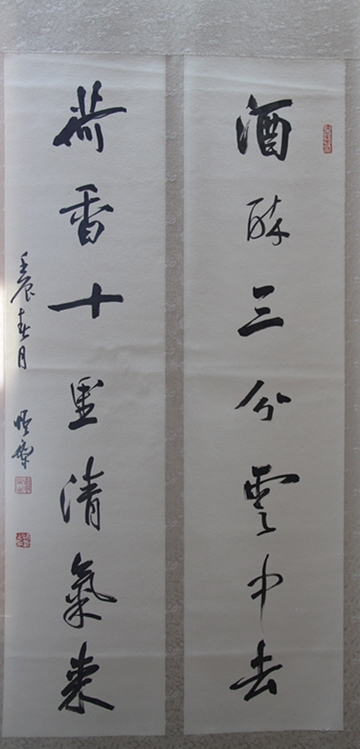 酒醉三分雲中去
荷香十里清氣來
壬辰春月